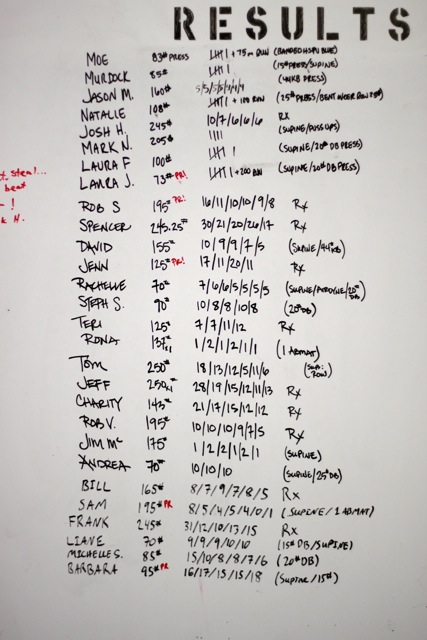 RESULTS
MOE 83# PRESS |||| | + 75m RUN (BANDED HSPU BLUE)
MURDOCK 85# |||| | (15# PRESS/SUPINE)
JASON M. 160# 5/5/5/5/4/4
NATALIE 108# |||| | + 100 RUN
JOSH H. 245# 10/7/6/6/6 RX
MARK N. 205# |||| (SUPINE/PUSSUPS)
LAURA F 100# |||| | (SUPINE/20# DB PRESS)
LAURA J. 73# PR! |||| | + 200 RUN (SUPINE/20# DB PRESS)
steal...
beat
!
K H.
ROB S 195# PR! 16/11/10/10/9/8 Rx
SPENCER 245.25# 30/21/20/26/17 Rx
DAVID 155# 10/9/9/7/5 (SUPINE/44KB)
JENN 125# PR! 17/11/20/11 Rx
RACHELLE 70# 7/6/6/5/5/5/5
STEPH S. 90# 10/8/8/10/8 (20# DB)
TERI 125# 7/7/11/12 Rx
RONA 1/2/1/2/1/1 (1 ABMAT)
TOM 250# 18/13/12/5/11/6 (SUP. ROW)
JEFF 28/19/15/12/11/13 Rx
CHARITY 143# 21/17/15/12/12 Rx
ROB V. 195# 10/10/10/9/7/5 Rx
JIM Mc 175# 1/2/2/1/2/1 (SUPINE)
ANDREA 70# 10/10/10 (SUPINE/25# DB)
BILL 165# 8/7/9/7/8/5 Rx
SAM 195# PR 8/5/4/5/4/0/1 (SUPENE/1 ABMAT)
FRANK 245# 31/12/10/13/15 Rx
LIANE 70# 9/9/9/10/10 (15# DB/SUPINE)
MICHELLE S. 85# 15/10/8/8/7/6 (20# DB)
BARBARA 95# PR 16/17/15/15/18 (SUPINE/15#)